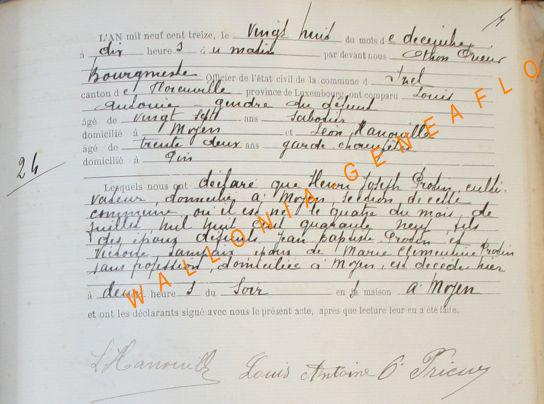 L'AN mil neuf cent treize, le vingt huit du mois de décembre
à dix heures du matin par devant nous Othon Prieur
Bourgmestre Officier de l'état civil de la commune d'Izel
canton de Florenville province de Luxembourg, ont comparu Louis
Antoine gendre du défunt
âgé de vingt sept ans sabotier
domicilié à Moyen et Léon Hanouille
âgé de trente deux ans garde champêtre
domicilié à
24
Lesquels nous ont déclaré que Henri Joseph Prodin culti-
vateur, domicilié à Moyen, section de cette
commune où il est né le quatre du mois de
juillet mil huit cent quarante neuf fils
des époux défunts Jean baptiste Prodin et
Victoire époux de Marie Clémentine Prodin
sans profession, domiciliée à Moyen, est décédé hier
à deux heures du soir en sa maison à Moyen
et ont les déclarants signé avec nous le présent acte, après que lecture leur en a été faite.
L Hanouille Louis Antoine O. Prieur
WALLONIA GENEAFLO